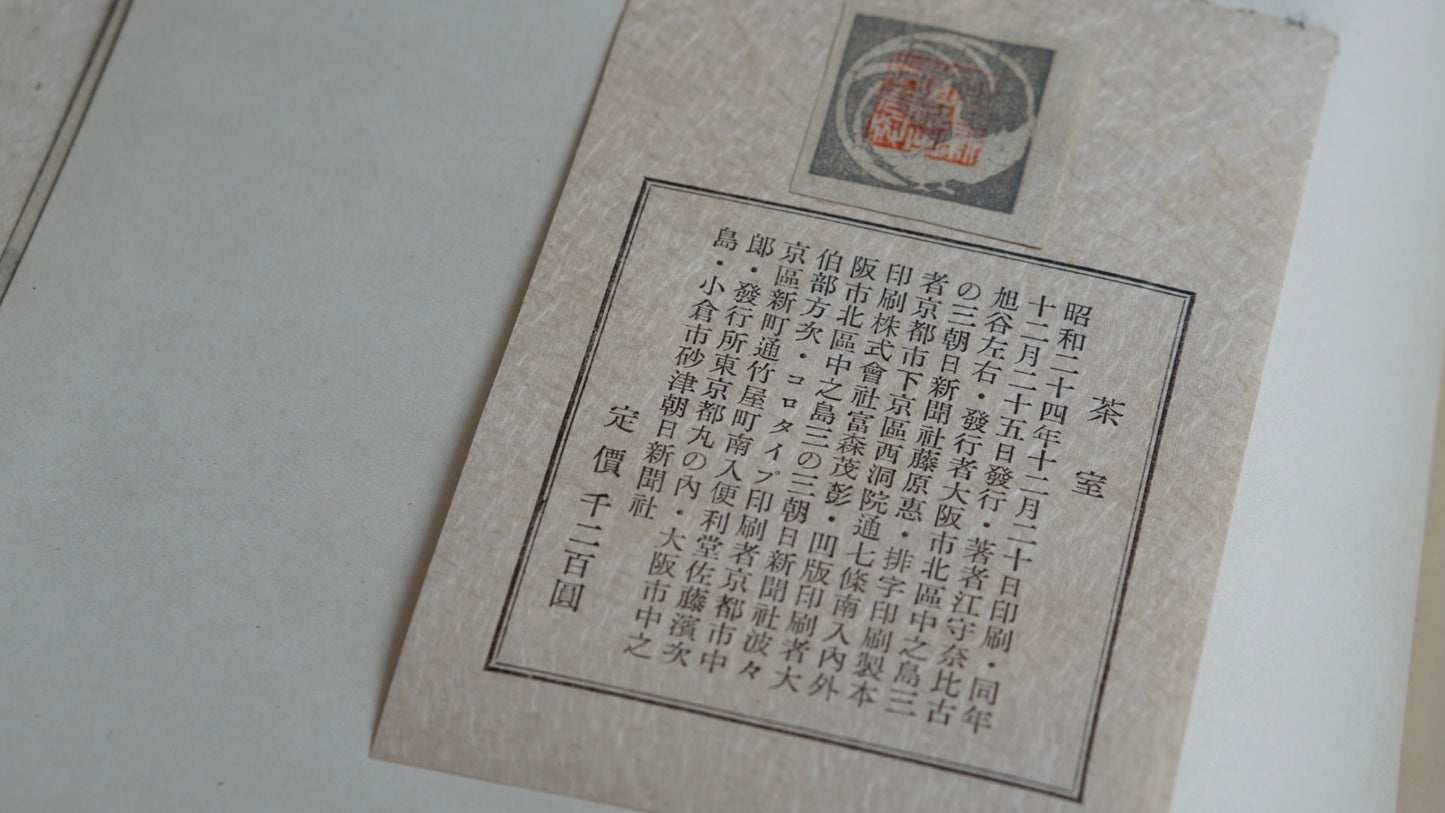 茶室
昭和二十四年十二月二十日印刷・同年
十二月二十五日發行・著者江守奈比古
旭谷左右・發行者大阪市北區中之島三
の三朝日新聞社藤原惠・排字印刷製本
者京都市下京區西洞院通七條南入內外
印刷株式會社富森茂彭・凹版印刷者大
阪市北區中之島三の三朝日新聞社波々
伯部方次・コロタイプ印刷者京都市中
京區新町通竹屋町南入便利堂佐藤濱次
郎・發行所東京都丸の內・大阪市中之
島・小倉市砂津朝日新聞社
定價 千二百圓